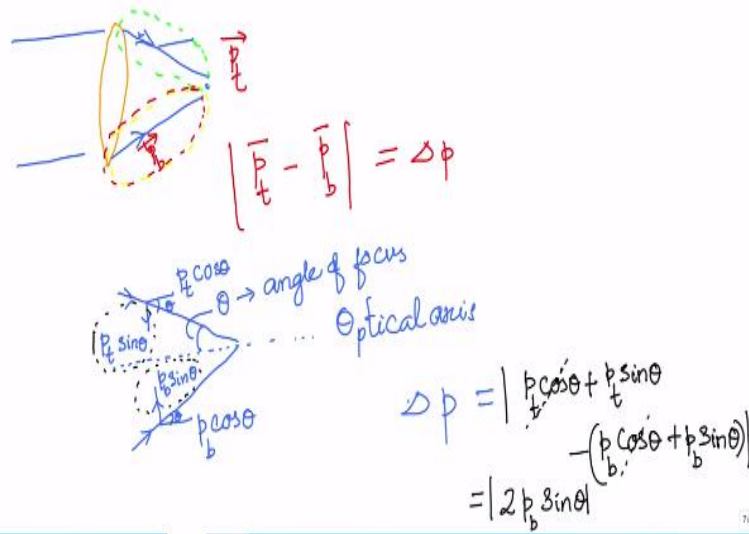 p⃗_t
p⃗_b
|p̅_t - p̅_b| = Δp
p_t cosθ
θ
θ → angle of focus
Optical axis
p_t sinθ
p_b sinθ
θ
p_b cosθ
Δp = |p_t cosθ + p_t sinθ
-(p_b cosθ + p_b sinθ)|
= |2p_b sinθ|